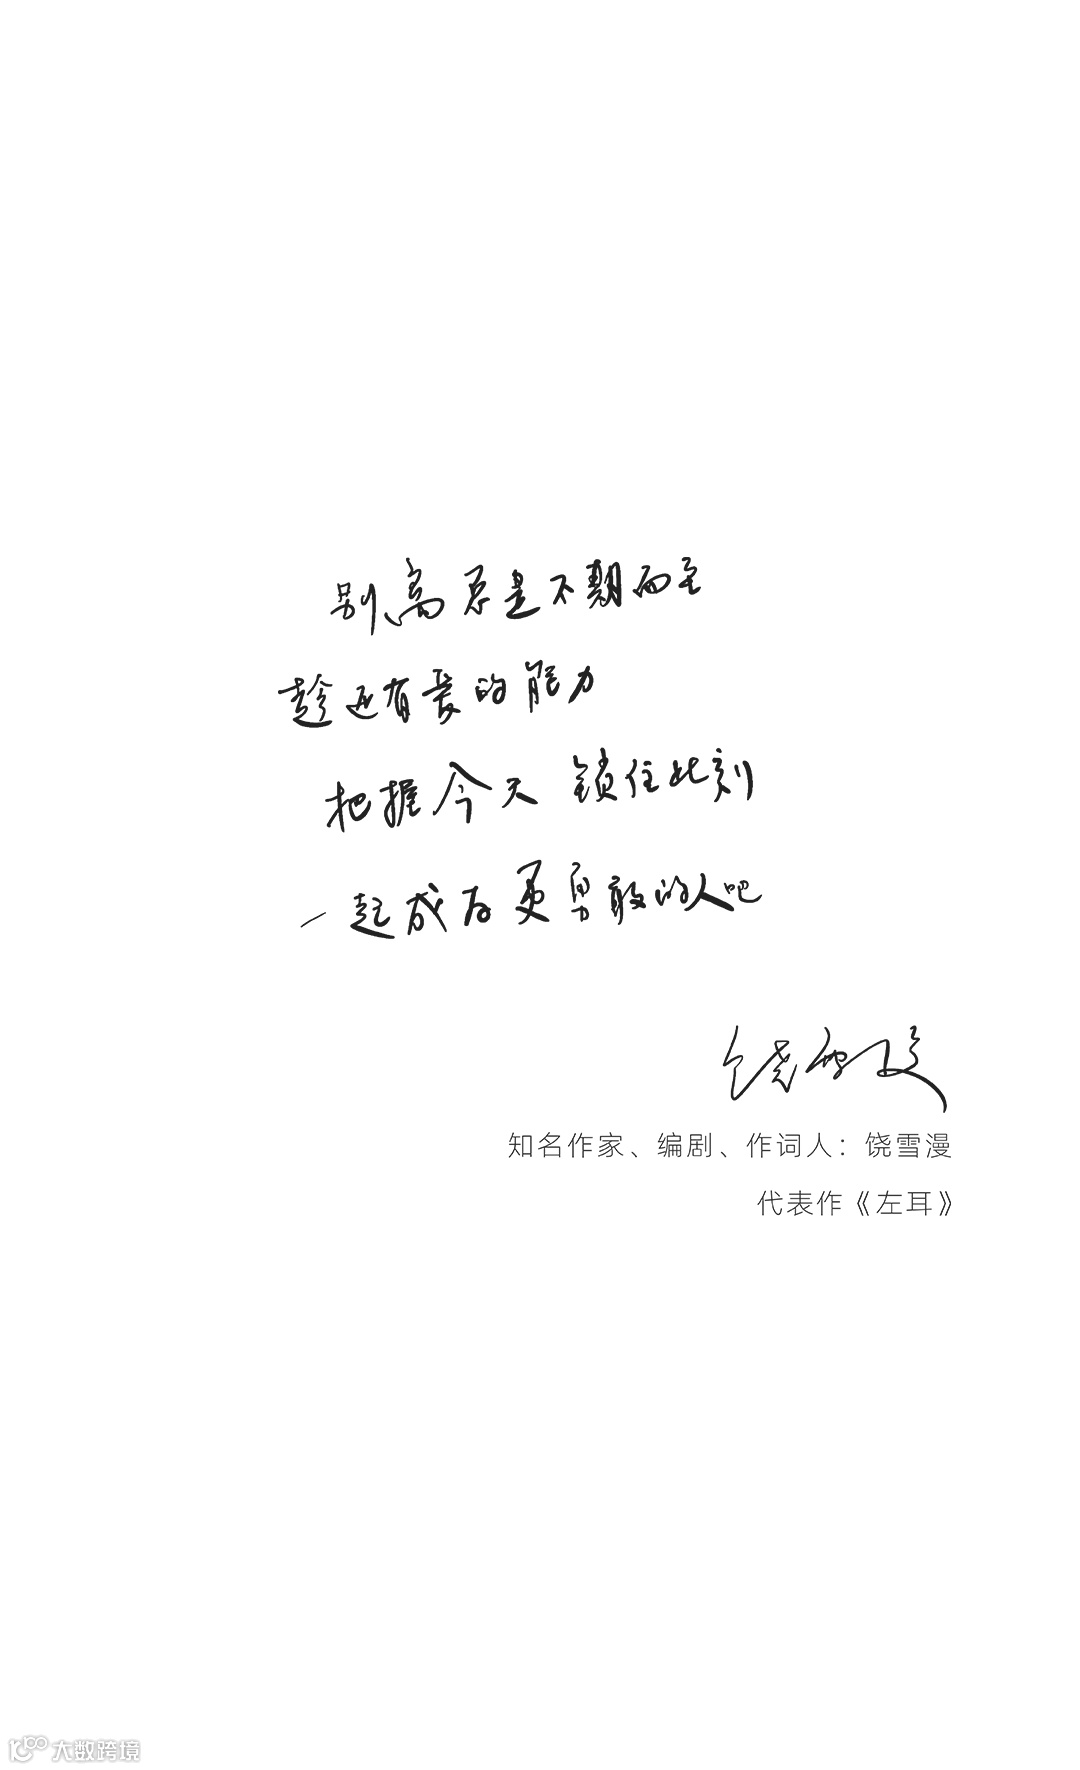 别离总是不期而至
趁还有爱的能力
把握今天 锁住此刻
一起成为更勇敢的人吧
饶雪漫
知名作家、编剧、作词人：饶雪漫
代表作《左耳》
大数跨境